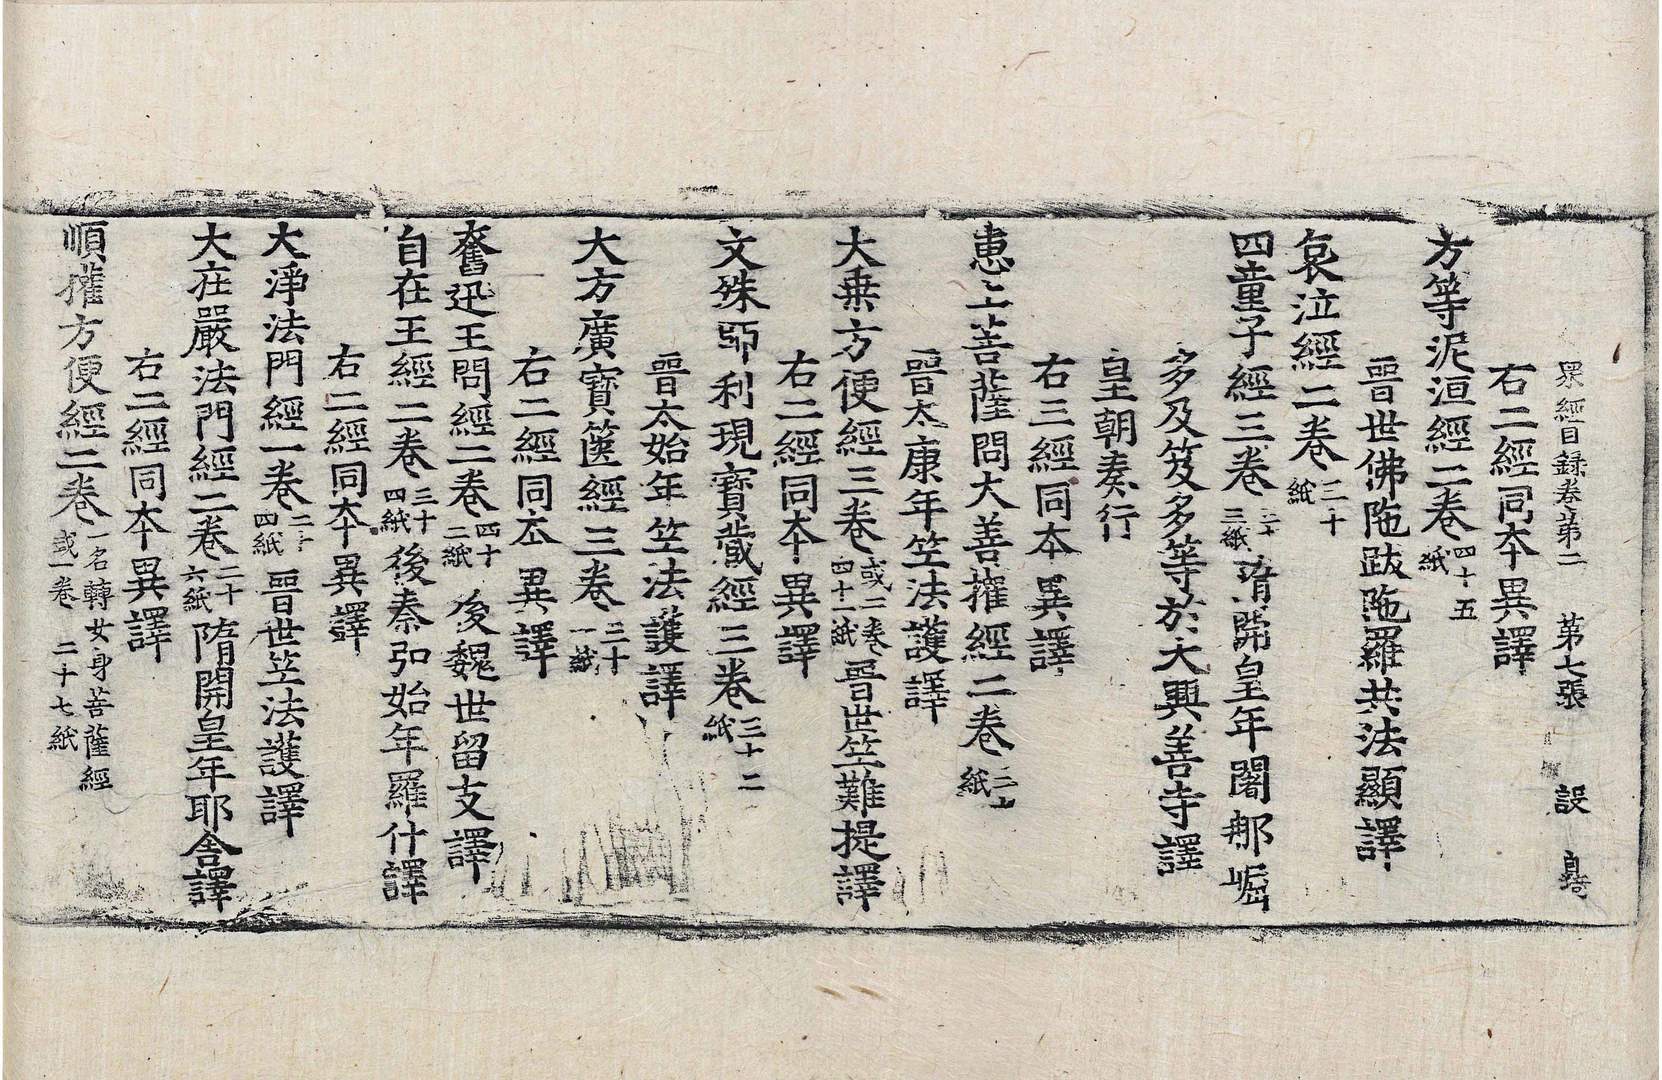 眾經目錄卷第二 第七張 設
右二經同本異譯
方等泥洹經二卷 四十五紙
晉世佛陁跋陁羅共法顯譯
哀泣經二卷 三十紙
四童子經三卷 三十三紙 隋開皇年闍那崛
多及笈多等於大興善寺譯
皇朝奏行
右三經同本異譯
惠上菩薩問大善權經二卷 三十紙
晉太康年竺法護譯
大乗方便經三卷 或二卷四十一紙 晉世竺難提譯
右二經同本異譯
文殊師利現寶藏經三卷 三十二紙
晉太始年竺法護譯
大方廣寶篋經三卷 三十一紙
右二經同本異譯
奮迅王問經二卷 四十二紙 後魏世留支譯
自在王經二卷 三十四紙 後秦弘始年羅什譯
右二經同本異譯
大淨法門經一卷 二十四紙 晉世竺法護譯
大莊嚴法門經二卷 二十六紙 隋開皇年耶舍譯
右二經同本異譯
順權方便經二卷 一名轉女身菩薩經 或一卷 二十七紙